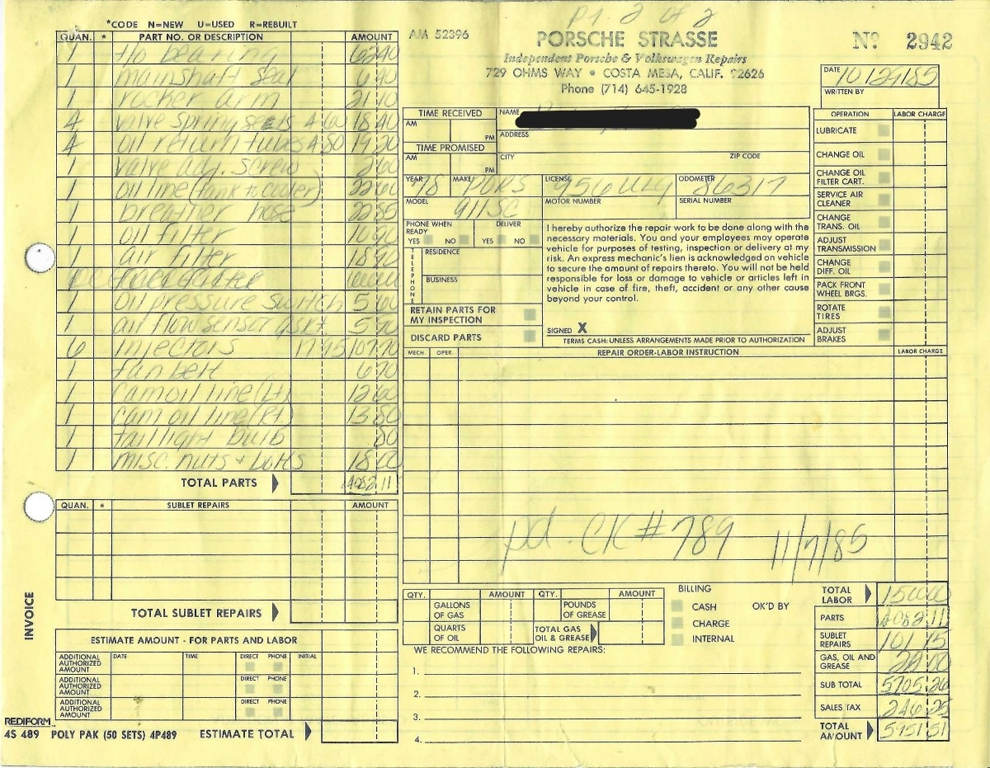 pt. 2 of 2
*CODE N=NEW U=USED R=REBUILT
AM 52396
PORSCHE STRASSE
Independent Porsche & Volkswagen Repairs
729 OHMS WAY • COSTA MESA, CALIF. 92626
Phone (714) 645-1928
Nº 2942
DATE 10/29/85
WRITTEN BY
QUAN. * PART NO. OR DESCRIPTION AMOUNT
1 t/o bearing 62 40
1 mainshaft seal 6 90
1 rocker arm 21 40
4 valve spring seats 4 60 18 40
4 oil return tubes 4 80 19 20
1 valve adj. screw
1 oil line (tank to cooler)
1 breather hose 22 85
1 oil filter
1 air filter
1 oil pressure switch
1 air flow sensor gskt
6 injectors 17 95 107 70
1 fan belt 6 90
1 cam oil line (Lt)
1 cam oil line (Rt) 13 80
1 taillight bulb 80
1 misc. nuts + bolts 18 00
TOTAL PARTS 4082 11
QUAN. * SUBLET REPAIRS AMOUNT
TOTAL SUBLET REPAIRS
ESTIMATE AMOUNT - FOR PARTS AND LABOR
ADDITIONAL AUTHORIZED AMOUNT DATE TIME DIRECT PHONE INITIAL
ADDITIONAL AUTHORIZED AMOUNT DIRECT PHONE
ADDITIONAL AUTHORIZED AMOUNT DIRECT PHONE
ESTIMATE TOTAL
INVOICE
REDIFORM
4S 489 POLY PAK (50 SETS) 4P489
TIME RECEIVED
AM
PM
TIME PROMISED
AM
PM
NAME
ADDRESS
CITY ZIP CODE
YEAR 78 MAKE PORS LICENSE 956 ULG ODOMETER 86317
MODEL 911SC MOTOR NUMBER SERIAL NUMBER
PHONE WHEN READY DELIVER
YES NO YES NO
TELEPHONE
RESIDENCE
BUSINESS
RETAIN PARTS FOR MY INSPECTION
DISCARD PARTS
I hereby authorize the repair work to be done along with the
necessary materials. You and your employees may operate
vehicle for purposes of testing, inspection or delivery at my
risk. An express mechanic's lien is acknowledged on vehicle
to secure the amount of repairs thereto. You will not be held
responsible for loss or damage to vehicle or articles left in
vehicle in case of fire, theft, accident or any other cause
beyond your control.
SIGNED X
TERMS CASH: UNLESS ARRANGEMENTS MADE PRIOR TO AUTHORIZATION
OPERATION LABOR CHARGE
LUBRICATE
CHANGE OIL
CHANGE OIL FILTER CART.
SERVICE AIR CLEANER
CHANGE TRANS. OIL
ADJUST TRANSMISSION
CHANGE DIFF. OIL
PACK FRONT WHEEL BRGS.
ROTATE TIRES
ADJUST BRAKES
MECH. OPER. REPAIR ORDER-LABOR INSTRUCTION LABOR CHARGE
pd. CK # 789 11/7/85
QTY. AMOUNT QTY. AMOUNT
GALLONS OF GAS POUNDS OF GREASE
QUARTS OF OIL TOTAL GAS OIL & GREASE
BILLING
CASH OK'D BY
CHARGE
INTERNAL
WE RECOMMEND THE FOLLOWING REPAIRS:
1.
2.
3.
4.
TOTAL LABOR
PARTS 4082 11
SUBLET REPAIRS 101 15
GAS, OIL AND GREASE
SUB TOTAL 5705 26
SALES TAX 246 25
TOTAL AMOUNT 5951 51